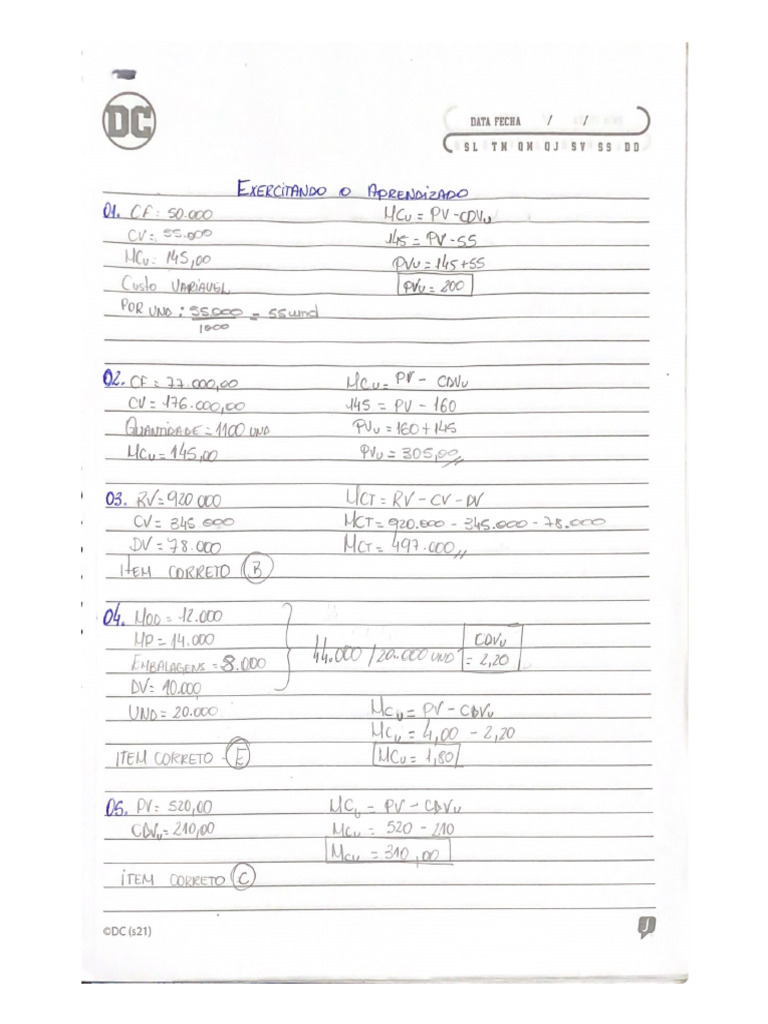 DC
DATA FECHA / /
SL TM QM QJ SV SS DD
EXERCITANDO O APRENDIZADO
01. CF = 50.000
CV = 55.000
MCU = 145,00
CUSTO VARIAVEL
POR UND : 55.000 = 55 und
1000
MCU = PV - CDVU
145 = PV - 55
PVU = 145 + 55
PVU = 200
02. CF = 77.000,00
CV = 176.000,00
QUANTIDADE = 1100 UND
MCU = 145,00
MCU = PV - CDVU
145 = PV - 160
PVU = 160 + 145
PVU = 305,00
03. RV = 920 000
CV = 345 000
DV = 78.000
ITEM CORRETO B
MCT = RV - CV - DV
MCT = 920.000 - 345.000 - 78.000
MCT = 497.000
04. MOD = 12.000
MP = 14.000
EMBALAGENS = 8.000
DV = 10.000
UND = 20.000
44.000 / 20.000 UND
CDVU
= 2,20
MCU = PV - CDVU
MCU = 4,00 - 2,20
MCU = 1,80
ITEM CORRETO - E
05. PV = 520,00
CDVU = 210,00
MCU = PV - CDVU
MCU = 520 - 210
MCU = 310,00
ITEM CORRETO C
©DC (s21)
J